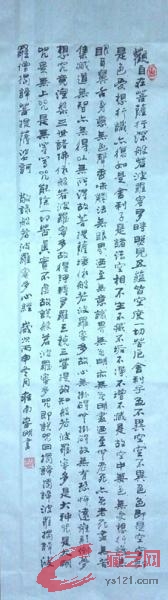 觀自在菩薩行深般若波羅蜜多時照見五蘊皆空度一切苦厄舍利子色不異空空不異色色即是空空即
是色受想行識亦復如是舍利子是諸法空相不生不滅不垢不淨不增不減是故空中無色無受想行識無
眼耳鼻舌身意無色聲香味觸法無眼界乃至無意識界無無明亦無無明盡乃至無老死亦無老死盡無苦
集滅道無智亦無得以無所得故菩提薩埵依般若波羅蜜多故心無罣礙無罣礙故無有恐怖遠離顛倒夢
想究竟涅槃三世諸佛依般若波羅蜜多故得阿耨多羅三藐三菩提故知般若波羅蜜多是大神咒是大明
咒是無上咒是無等等咒能除一切苦真實不虛故說般若波羅蜜多咒即說咒曰揭諦揭諦波羅揭諦波
羅僧揭諦菩提薩婆訶 敬錄般若波羅蜜多心經 歲次丙申冬月
ys121.com